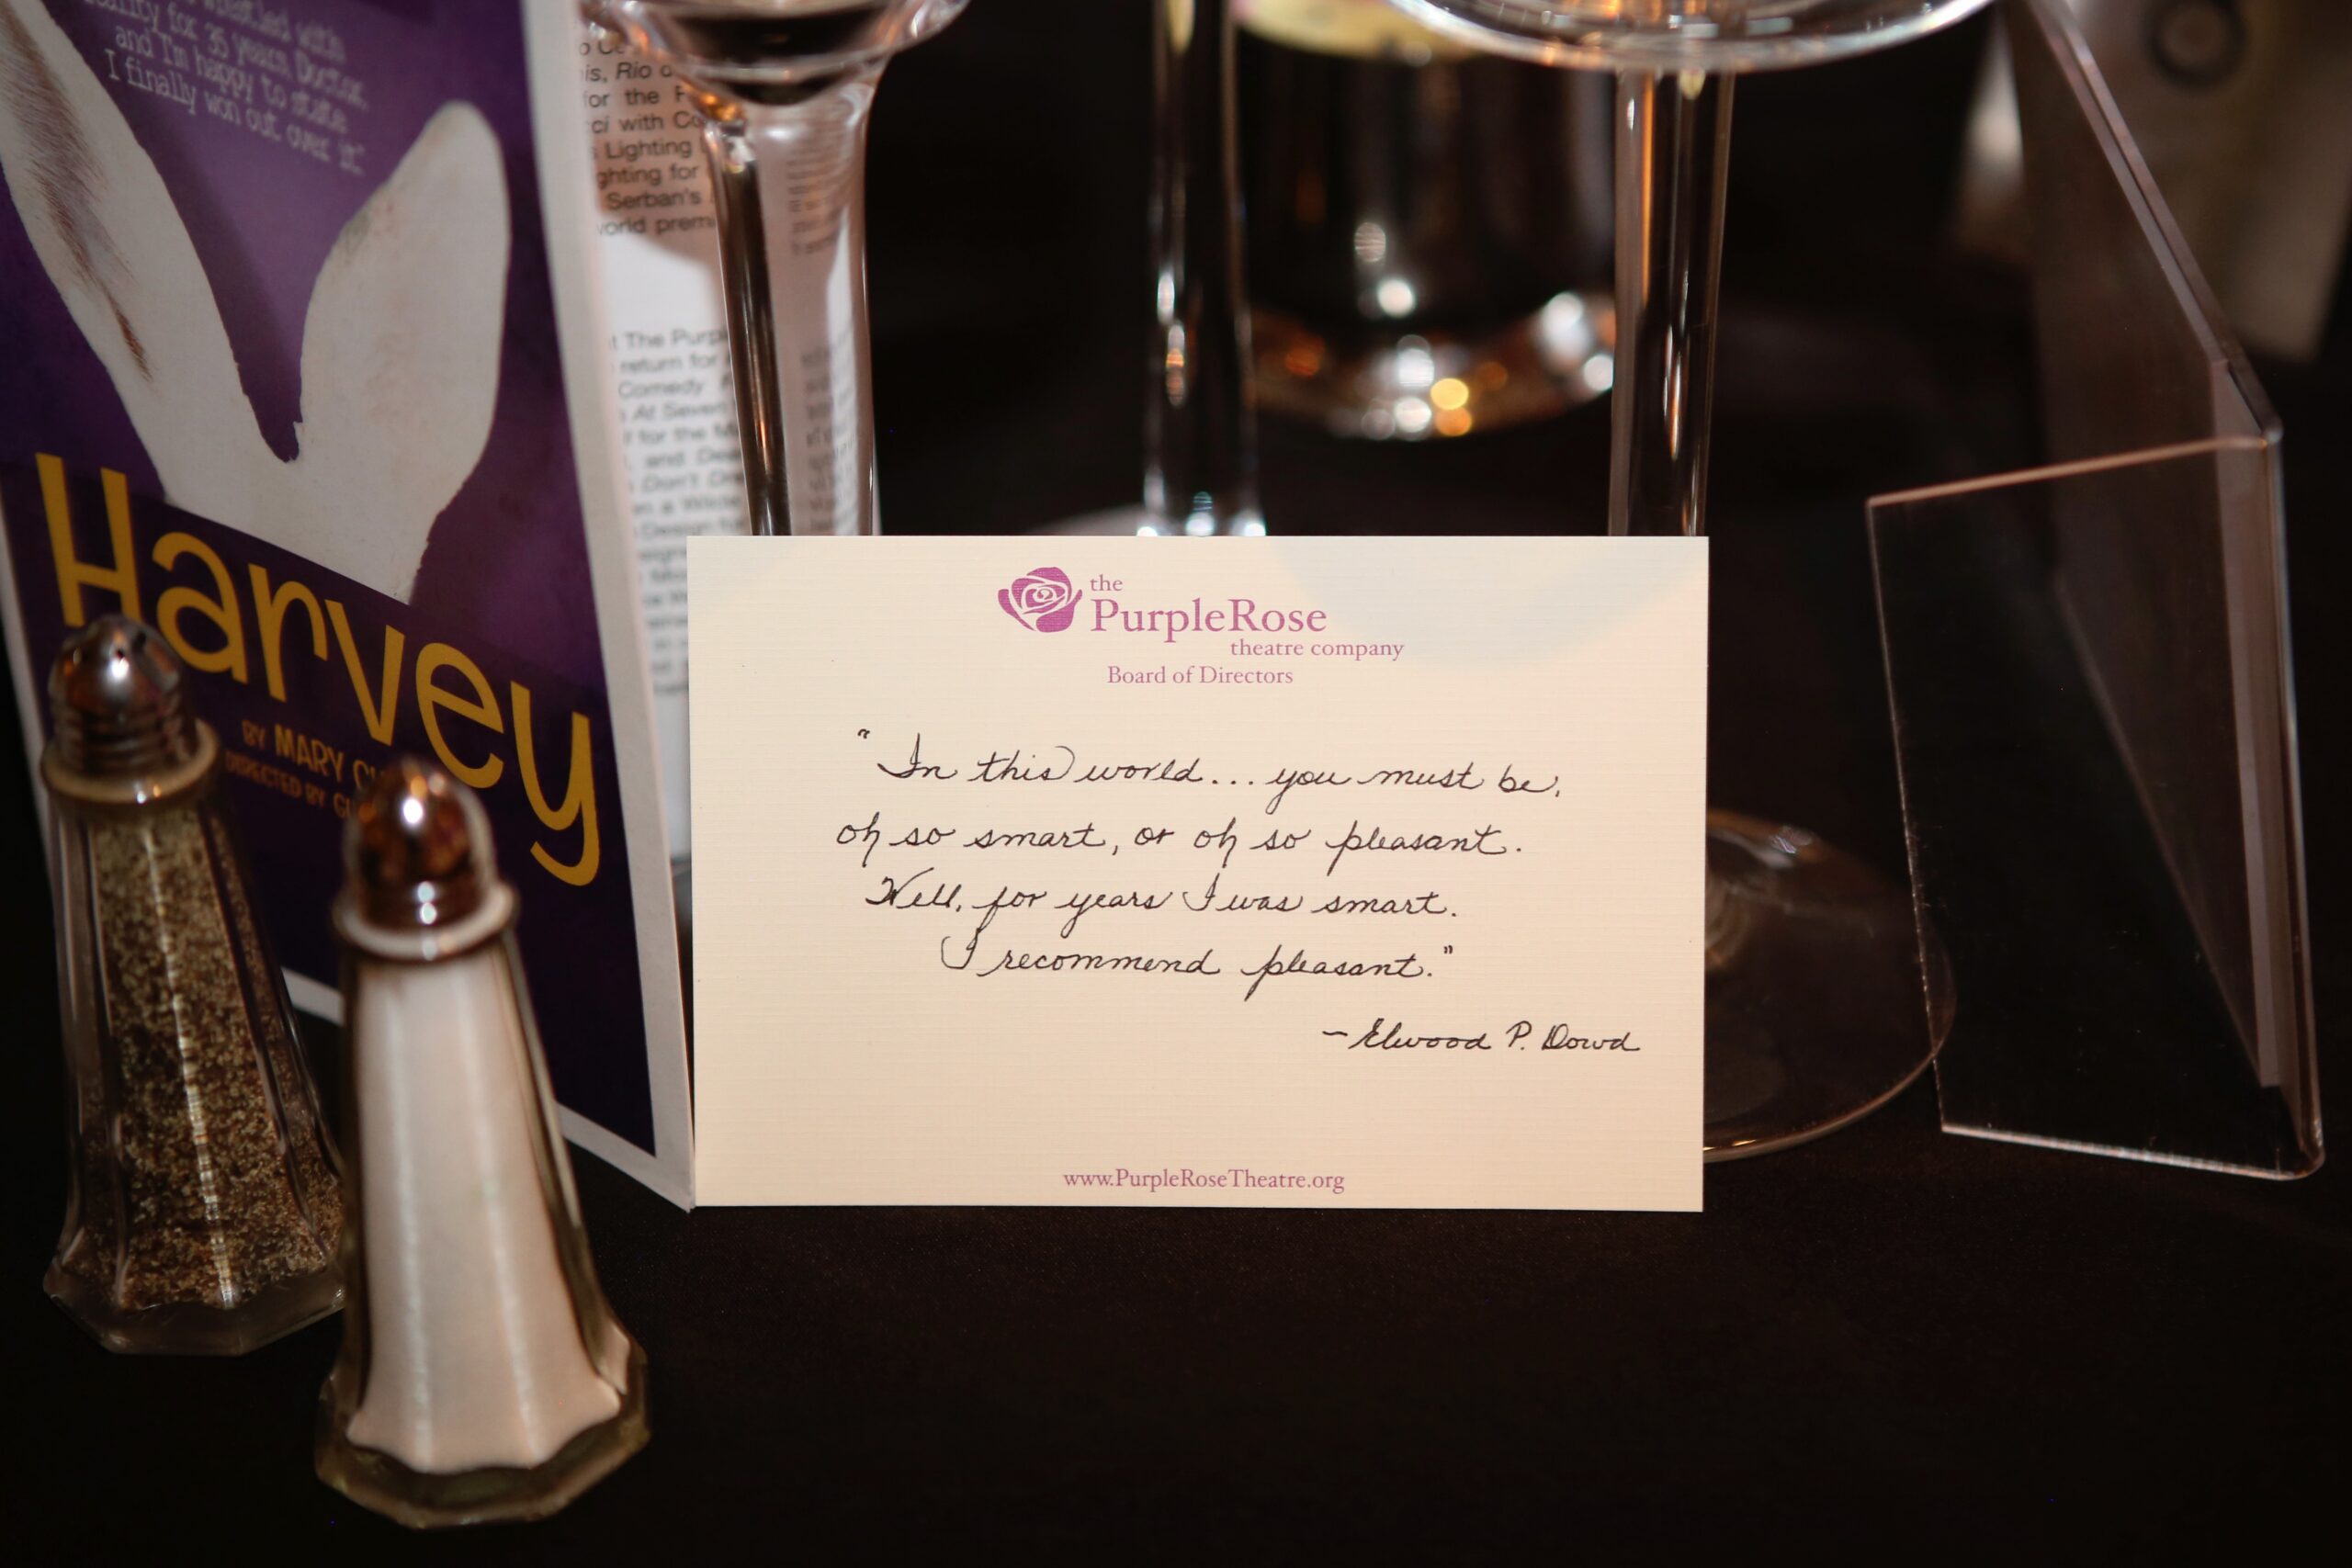 wrestled with
reality for 35 years, Doctor,
and I'm happy to state
I finally won out over it."
Harvey
BY MARY
DIRECTED BY
Rio
for the
with
Lighting
for
Serban's
world
The
return for
Comedy
At Seven
for the
and
Don't
a
Design for
the
PurpleRose
theatre company
Board of Directors
"In this world... you must be,
oh so smart, or oh so pleasant.
Well, for years I was smart.
I recommend pleasant."
- Elwood P. Dowd
www.PurpleRoseTheatre.org